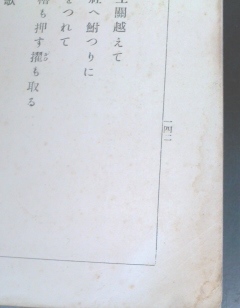 關越えて
へ鮒つりに
をつれて
櫓も押す擢も取る
歌
一四二